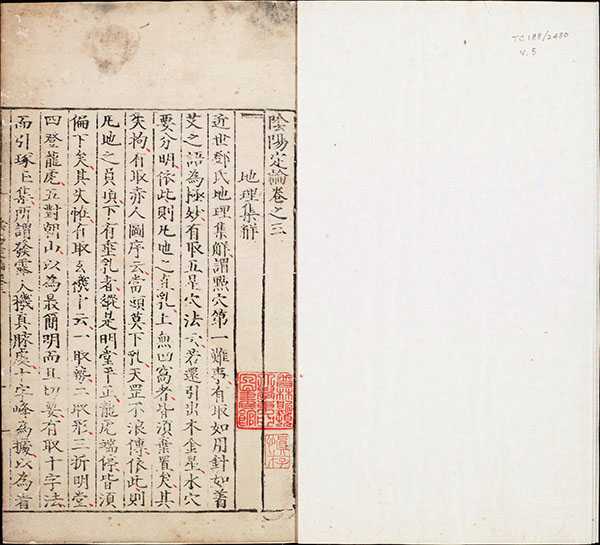 陰陽定論卷之三
地理集解
近世鄭氏地理集解謂㸃穴第一難事有取如用針如著
艾之語為極妙有取五星穴法云若還引出木金星水穴
要分明依此則凡地之直乳上無凹窩者皆須棄置矣其
失拘有取赤人圖序云當頭莫下乳天罡不浪傳依此則
凡地之員塤下有垂乳者縱是明堂平正龍虎端停皆須
偏下矣其失有取玄機云一取勢二取形三折明堂
四登龍虎五對朝山以為最簡明而且切要有取十字法
而引琢玉集所謂發露人機真脉處十字峰為據以為
TC188/2430
V.5